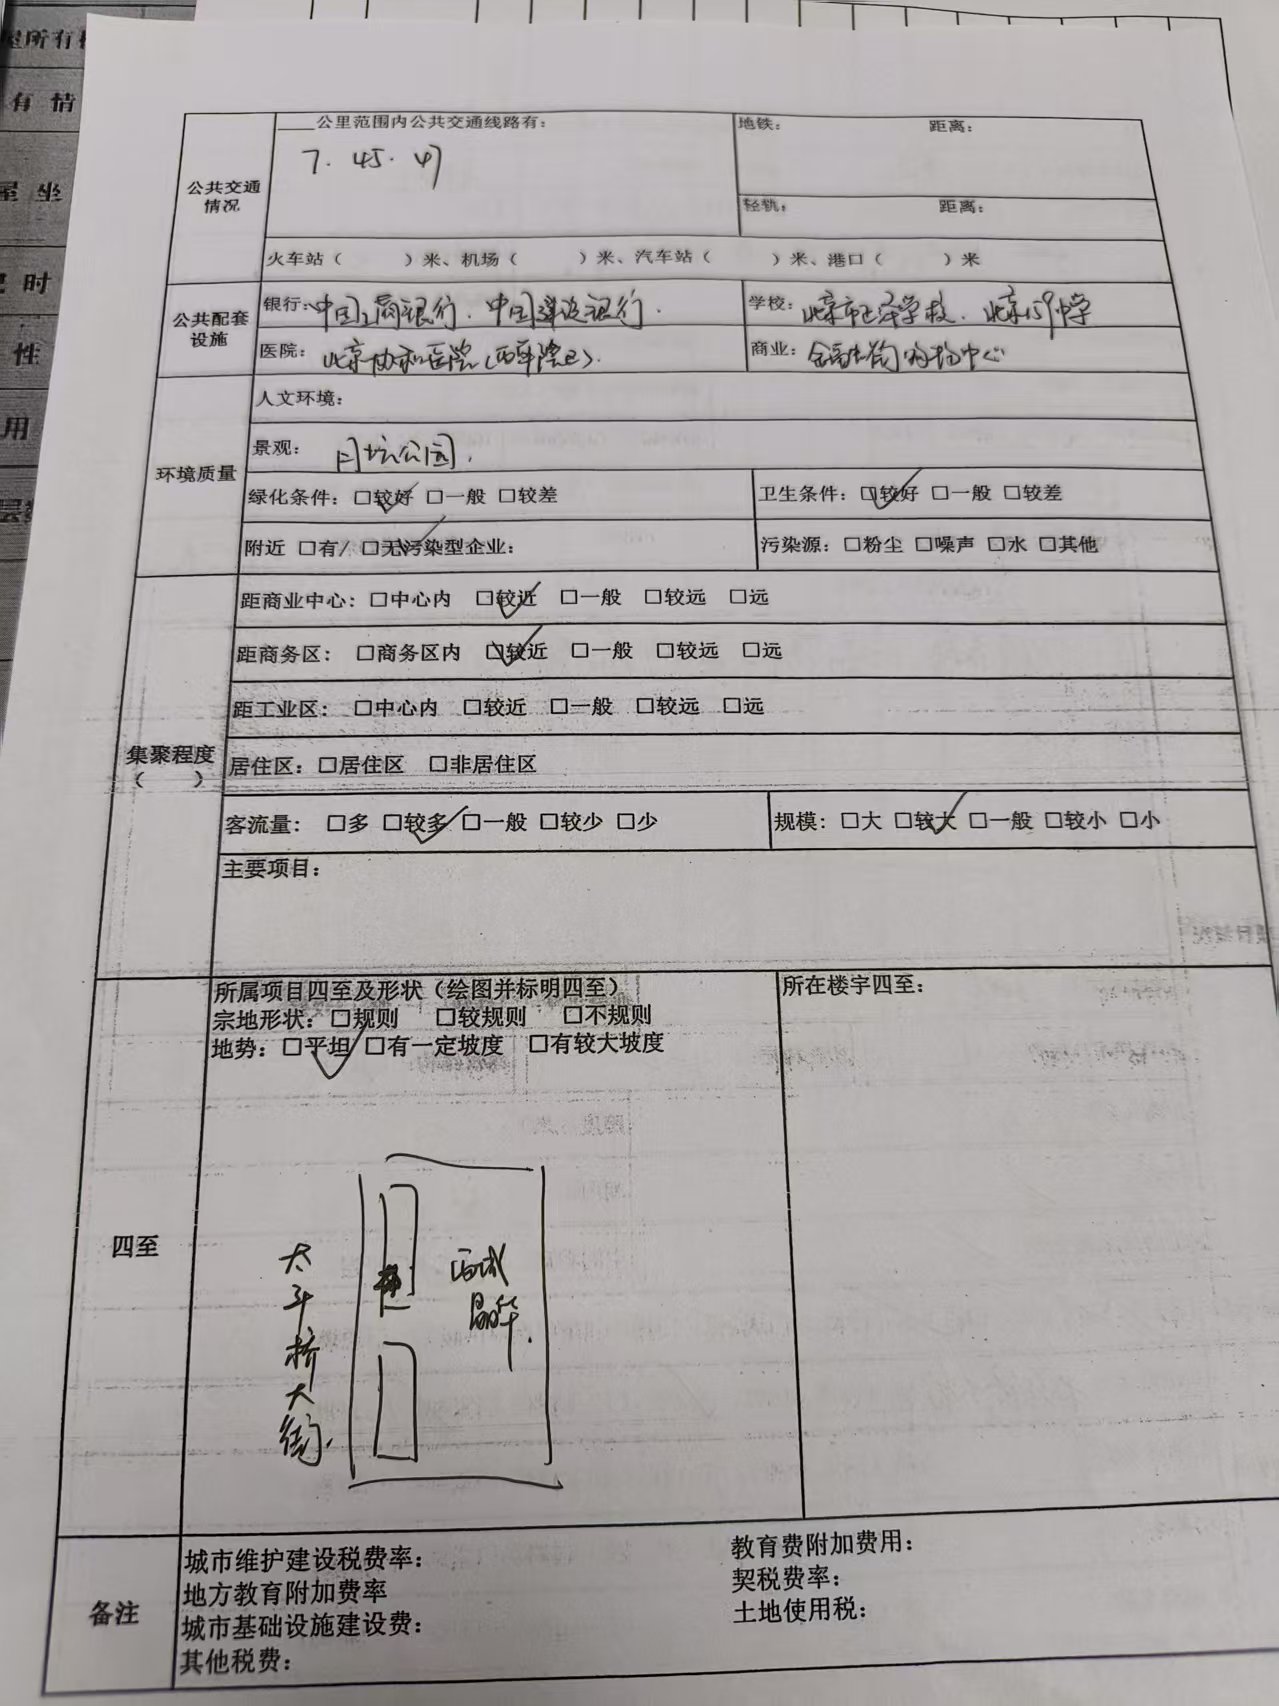 屋所有权
有 情
屋 坐
时
性
用
层数
公共交通
情况
____公里范围内公共交通线路有：
7. 45. 47
地铁： 距离：
轻轨： 距离：
火车站（ ）米、机场（ ）米、汽车站（ ）米、港口（ ）米
公共配套
设施
银行：中国工商银行. 中国建设银行.
学校：北京市正泽学校. 北京159中学
医院：北京协和医院（西单院区）.
商业：购物中心
环境质量
人文环境：
景观：月坛公园.
绿化条件：☑较好 □一般 □较差
卫生条件：☑较好 □一般 □较差
附近 □有/ ☑无污染型企业：
污染源：□粉尘 □噪声 □水 □其他
集聚程度
（ ）
距商业中心：□中心内 ☑较近 □一般 □较远 □远
距商务区：□商务区内 ☑较近 □一般 □较远 □远
距工业区：□中心内 □较近 □一般 □较远 □远
居住区：□居住区 □非居住区
客流量：□多 ☑较多 □一般 □较少 □少
规模：□大 ☑较大 □一般 □较小 □小
主要项目：
四至
所属项目四至及形状（绘图并标明四至）
宗地形状：□规则 □较规则 □不规则
地势：☑平坦 □有一定坡度 □有较大坡度
所在楼宇四至：
太平桥大街.
西城
晶华.
备注
城市维护建设税费率：
教育费附加费用：
地方教育附加费率
契税费率：
城市基础设施建设费：
土地使用税：
其他税费：